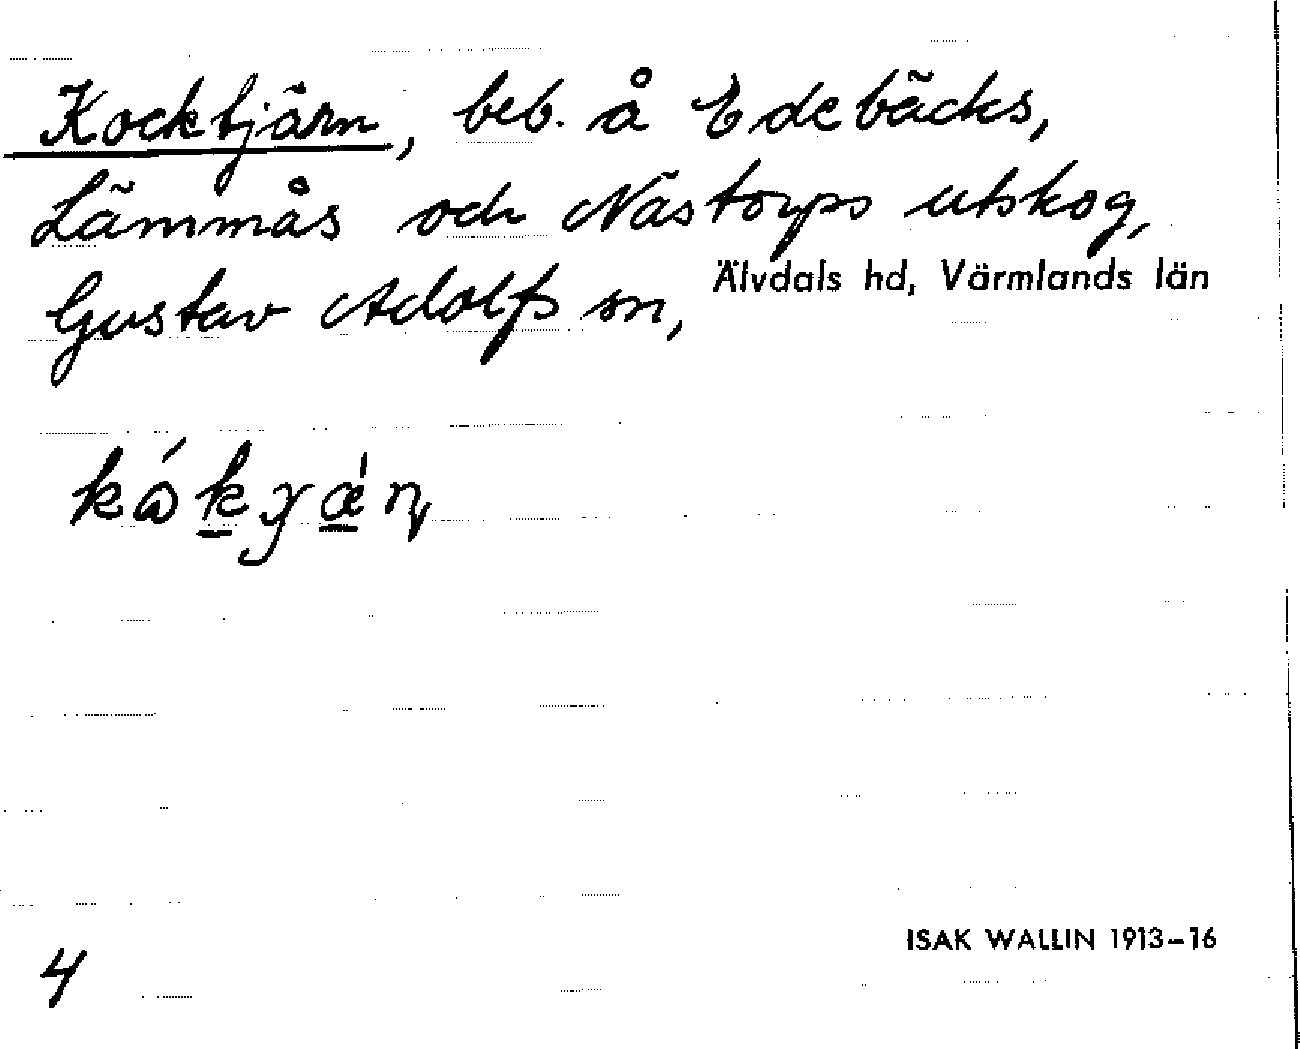 Kockbjärn, beb. å Edebäcks,
Lämmås och Nästorps utskog,
Gustav Adolfs sn, Älvdals hd, Värmlands län
ISAK WALLIN 1913–16
4